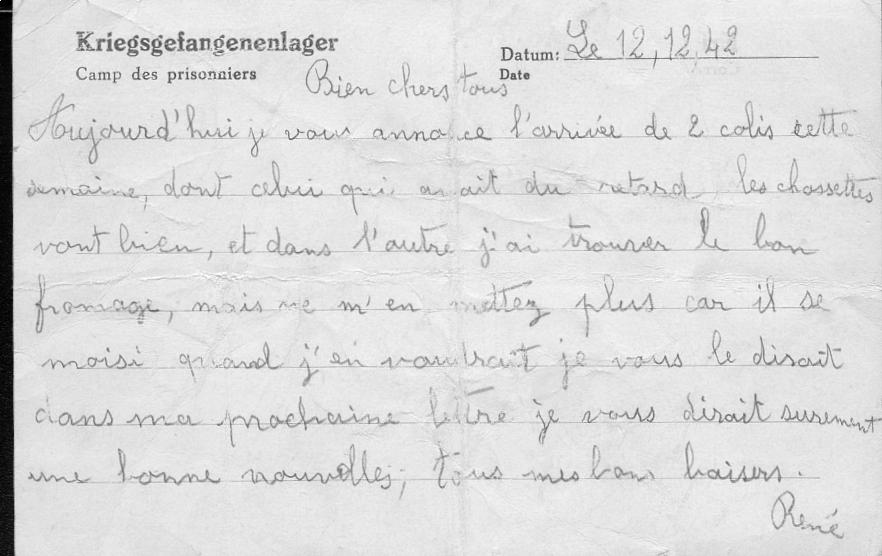 Kriegsgefangenenlager
Camp des prisonniers
Datum: Le 12,12,42
Date
Bien chers tous
Aujourd'hui je vous annonce l'arrivée de 2 colis cette
semaine, dont celui qui avait du retard, les chossettes
vont bien, et dans l'autre j'ai trouver le bon
fromage, mais ne m'en mettez plus car il se
moisi quand j'en voudrait je vous le disait
dans ma prochaine lettre je vous dirait surement
une bonne nouvelles, tous mes bons baisers.
René